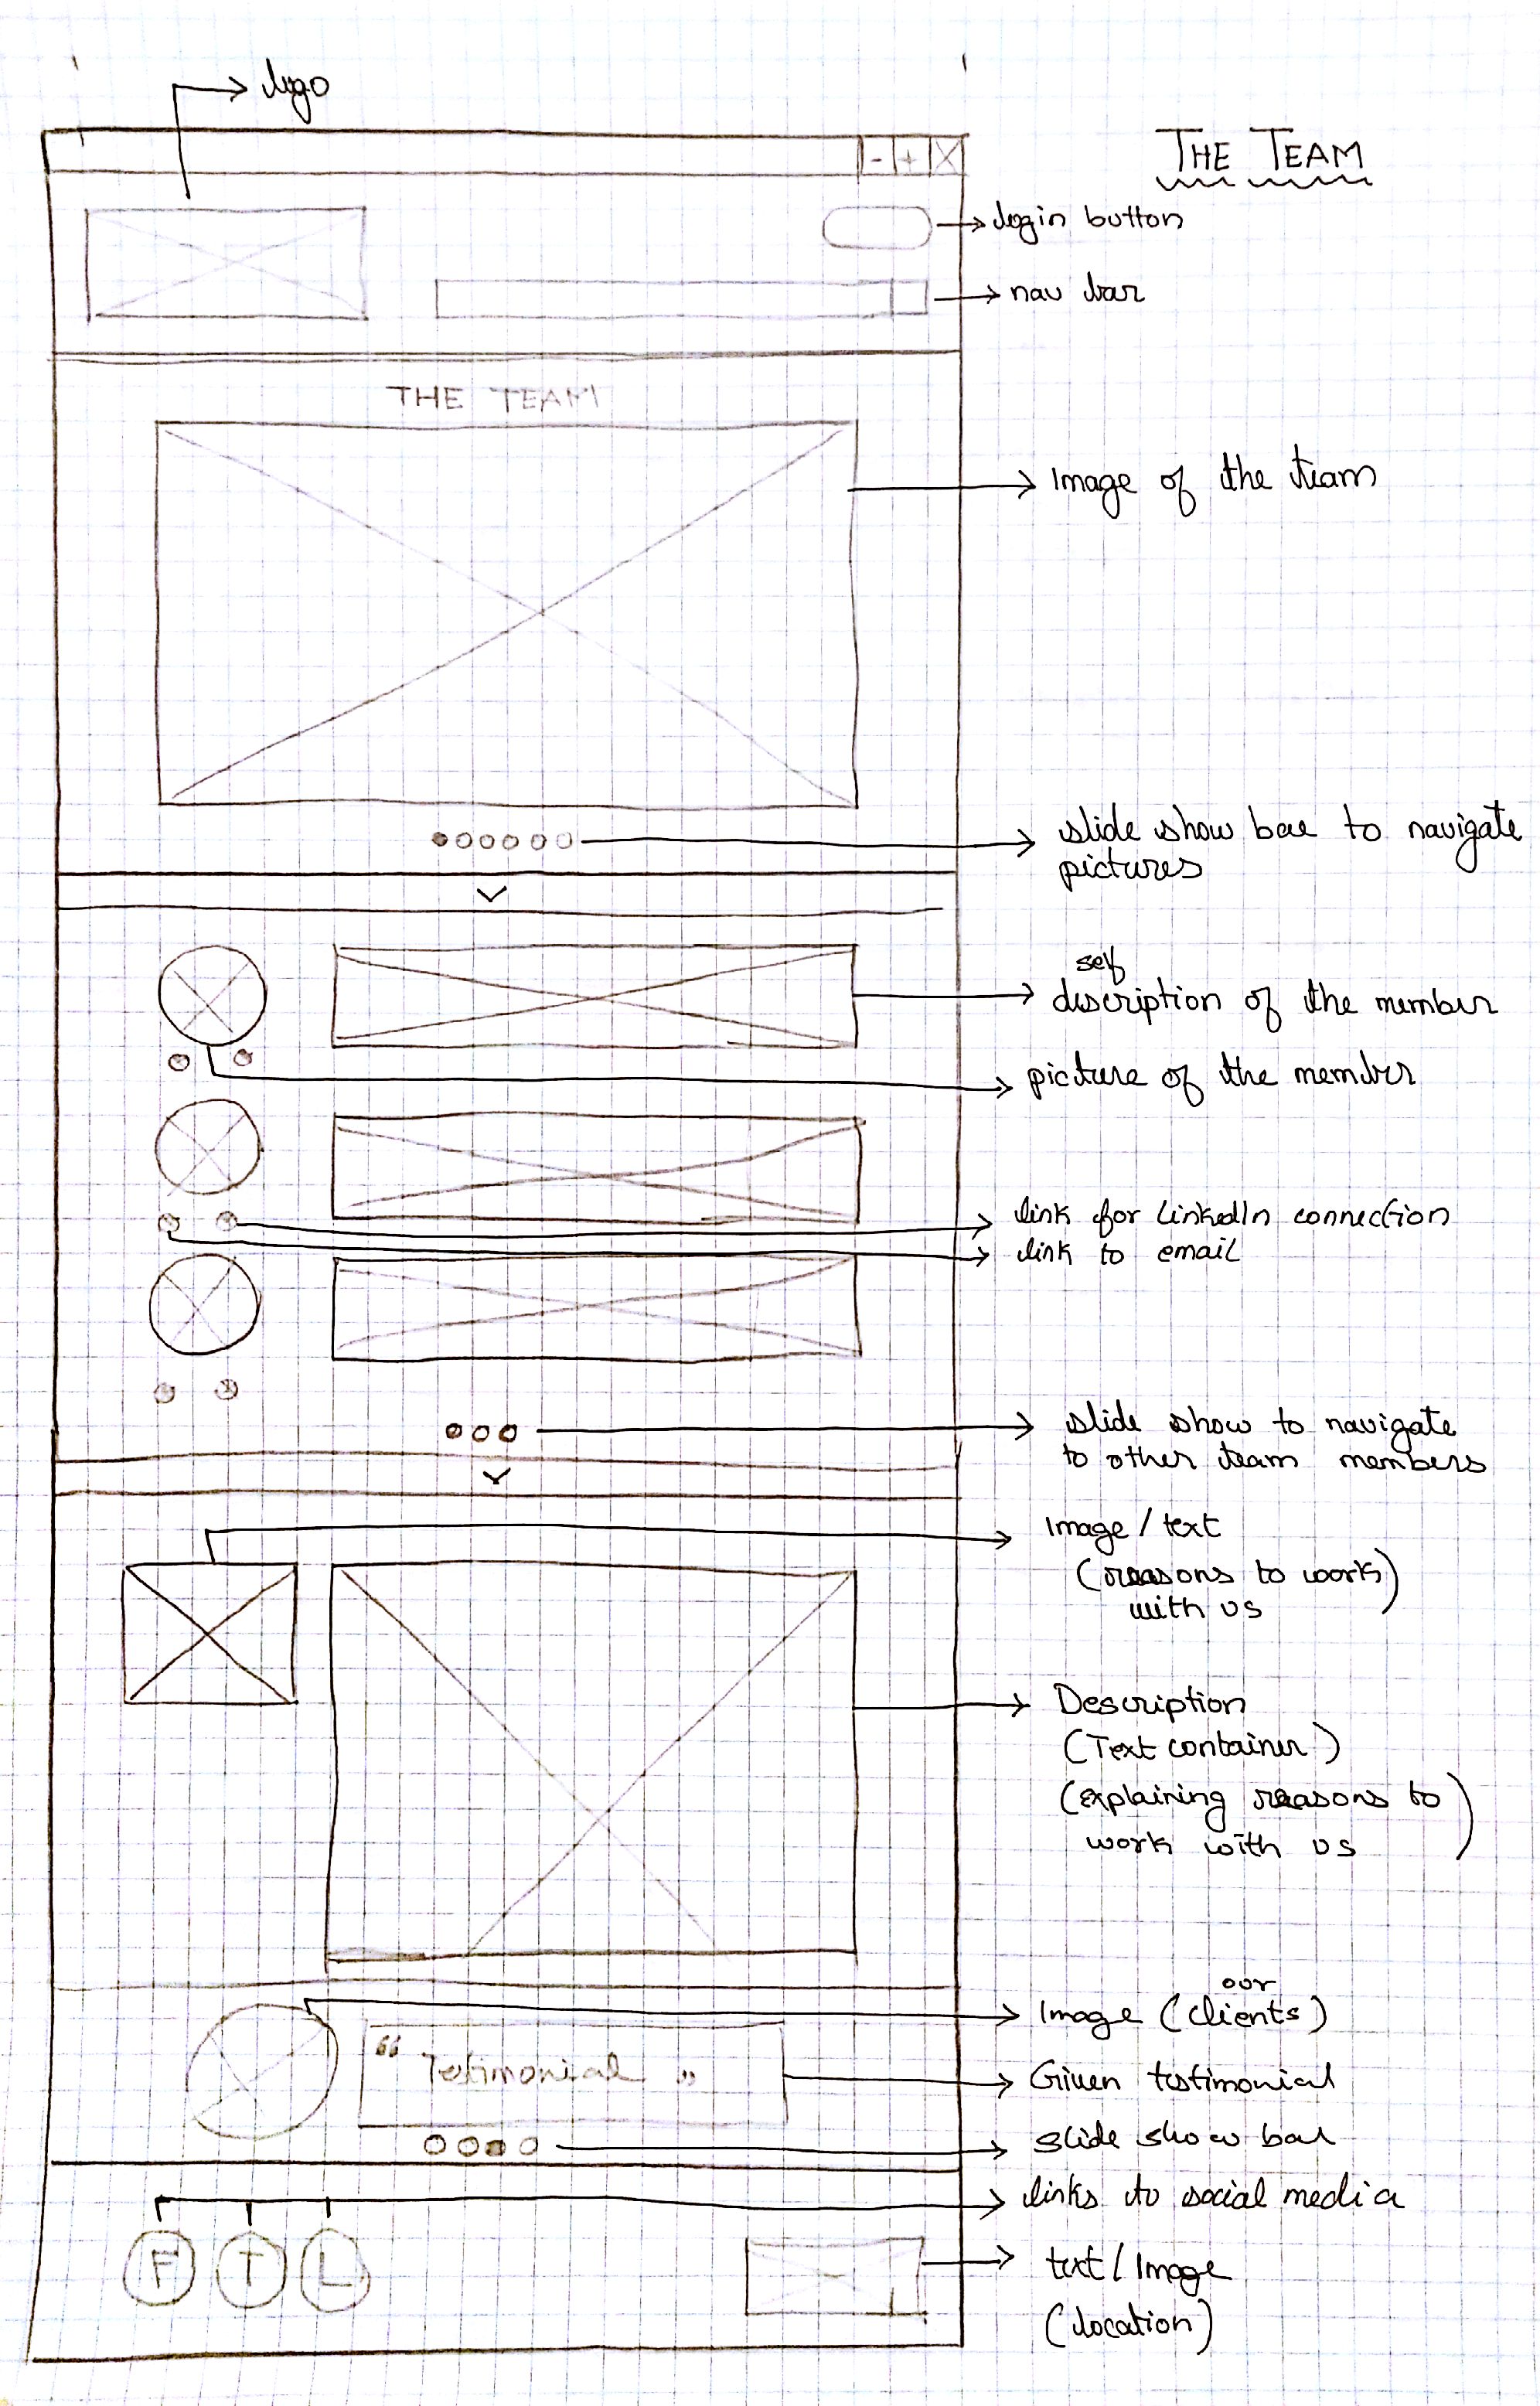 logo
- + X
THE TEAM
login button
nav bar
THE TEAM
Image of the team
slide show bar to navigate
pictures
self
description of the member
picture of the member
link for LinkedIn connection
link to email
slide show to navigate
to other team members
Image / text
(reasons to work)
with us
Description
(Text container)
(explaining reasons to
work with us)
our
Image (clients)
“ Testimonial ”
Given testimonial
slide show bar
links to social media
F T L
text / Image
(location)